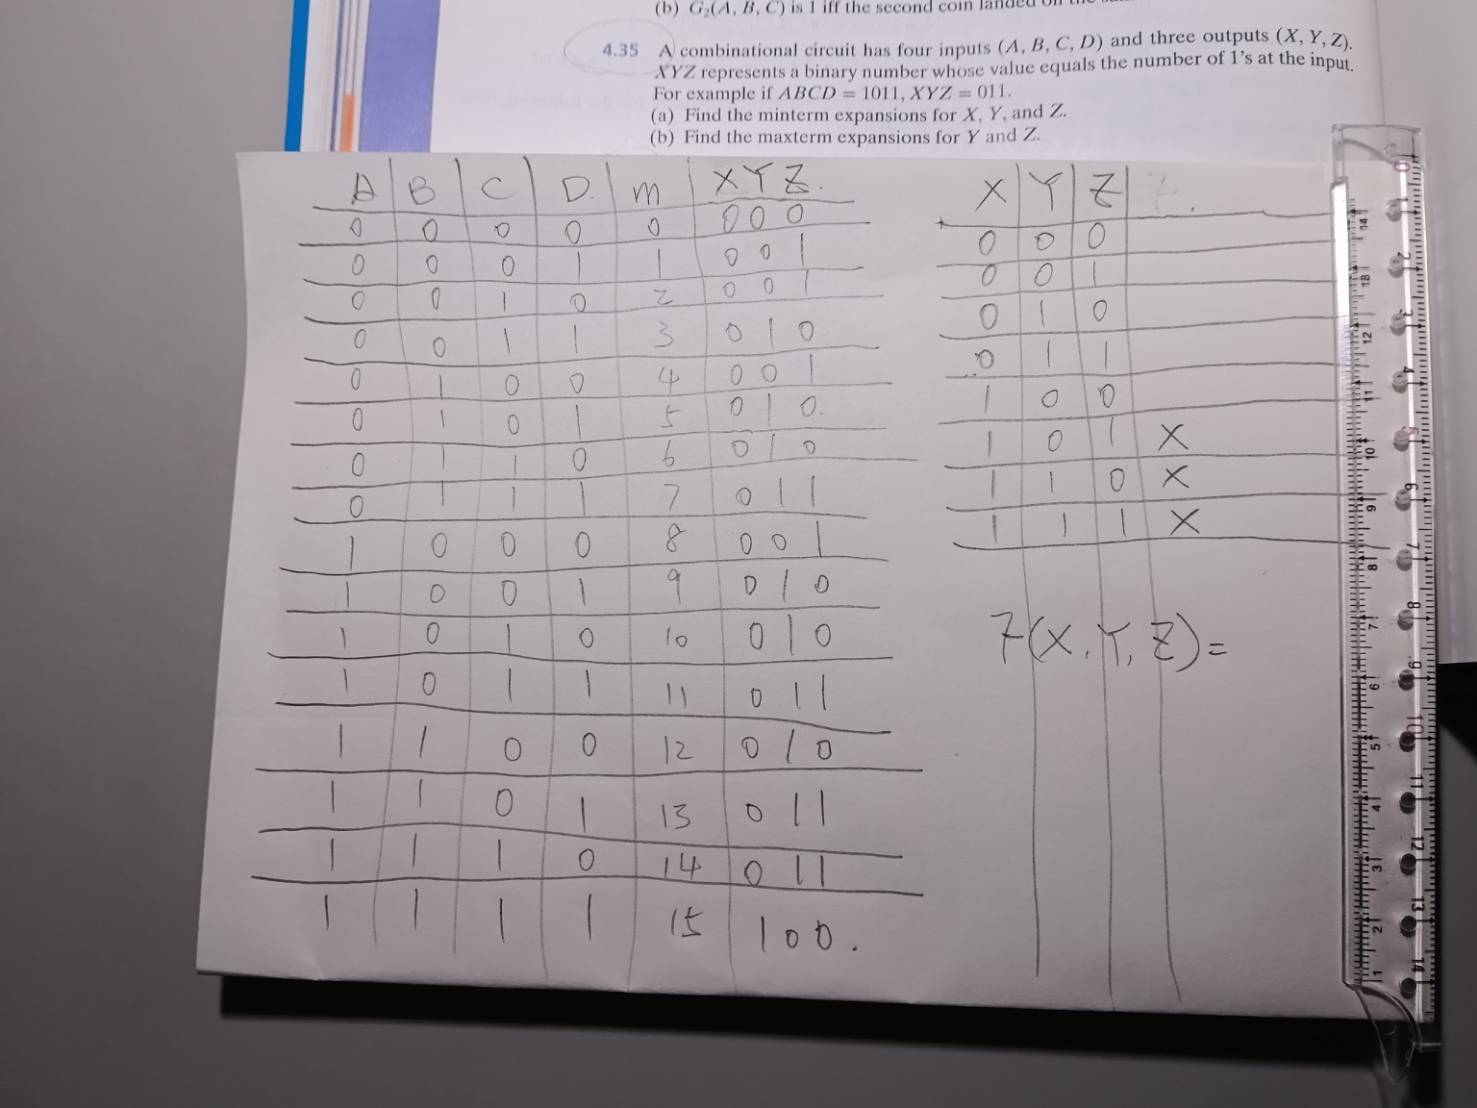 (b) G₂(A, B, C) is 1 iff the second coin landed
4.35 A combinational circuit has four inputs (A, B, C, D) and three outputs (X, Y, Z).
XYZ represents a binary number whose value equals the number of 1's at the input.
For example if ABCD = 1011, XYZ = 011.
(a) Find the minterm expansions for X, Y, and Z.
(b) Find the maxterm expansions for Y and Z.
A B C D. m X Y Z.
0 0 0 0 0 0 0 0
0 0 0 1 1 0 0 1
0 0 1 0 2 0 0 1
0 0 1 1 3 0 1 0
0 1 0 0 4 0 0 1
0 1 0 1 5 0 1 0.
0 1 1 0 6 0 1 0
0 1 1 1 7 0 1 1
1 0 0 0 8 0 0 1
1 0 0 1 9 0 1 0
1 0 1 0 10 0 1 0
1 0 1 1 11 0 1 1
1 1 0 0 12 0 1 0
1 1 0 1 13 0 1 1
1 1 1 0 14 0 1 1
1 1 1 1 15 1 0 0.
X Y Z
0 0 0
0 0 1
0 1 0
0 1 1
1 0 0
1 0 1 X
1 1 0 X
1 1 1 X
F(X, Y, Z) =
0 1 2 3 4 5 6 7 8 9 10 11 12 13 14
14 13 12 11 10 9 8 7 6 5 4 3 2 1